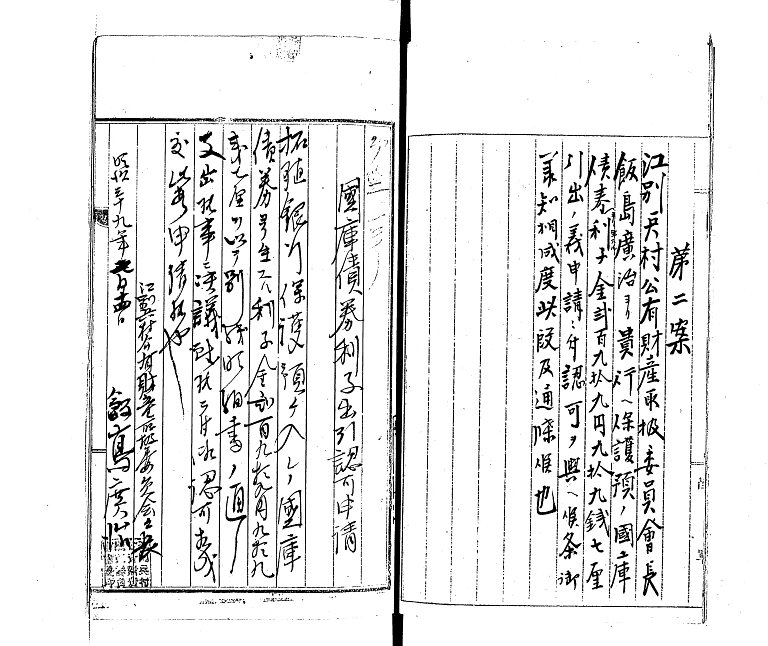 第二案
江別兵村公有財産取扱委員會長
飯島廣治ヨリ貴行ヘ保護預ノ國庫
債券利子金弐百九拾九円九拾九銭七厘
引出ノ義申請ニ付認可ヲ與ヘ候条御
義知相成度此段及通牒候也
國庫債券利子金引出認可申請
拓殖銀行保護預ケ入レノ國庫
債券ヨリ生スル利子金弐百九拾九円九拾九
銭七厘ヲ以テ別紙明細書ノ通リ
支出致事ニ決議致候ニ付御認可
此段申請候也
明治三十九年
江別兵村公有財産取扱委員会長
飯島廣治